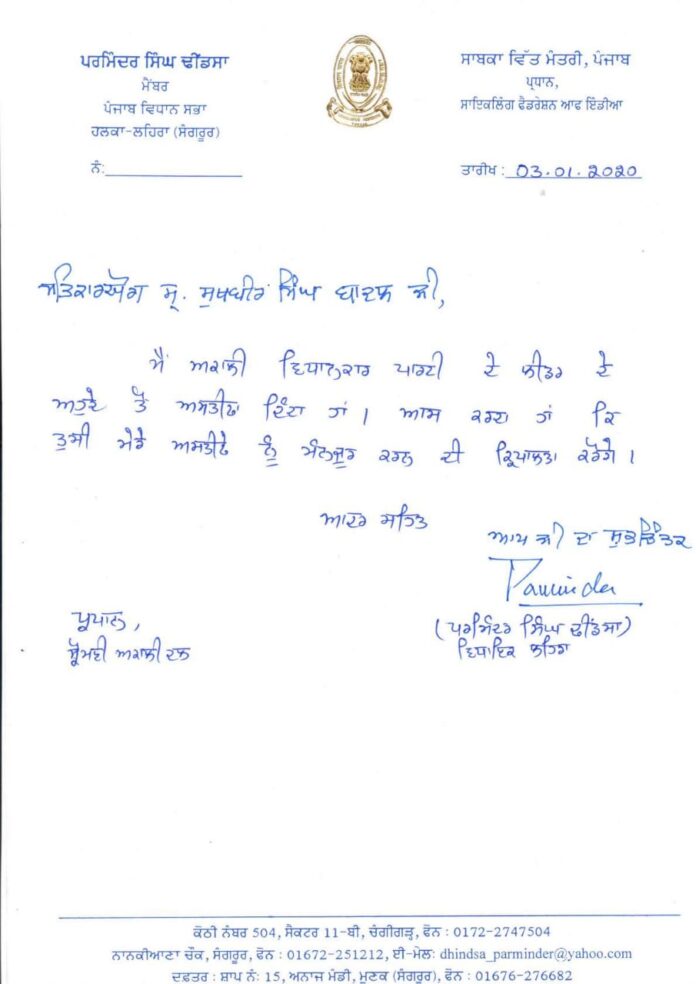 ਪਰਮਿੰਦਰ ਸਿੰਘ ਢੀਂਡਸਾ
ਮੈਂਬਰ
ਪੰਜਾਬ ਵਿਧਾਨ ਸਭਾ
ਹਲਕਾ-ਲਹਿਰਾ (ਸੰਗਰੂਰ)
ਨੰ:
ਸਾਬਕਾ ਵਿੱਤ ਮੰਤਰੀ, ਪੰਜਾਬ
ਪ੍ਰਧਾਨ,
ਸਾਇਕਲਿੰਗ ਫੈਡਰੇਸ਼ਨ ਆਫ ਇੰਡੀਆ
ਤਾਰੀਖ : 03.01.2020
ਸਤਿਕਾਰਯੋਗ ਸ੍ਰ. ਸੁਖਬੀਰ ਸਿੰਘ ਬਾਦਲ ਜੀ,
ਮੈਂ ਅਕਾਲੀ ਵਿਧਾਨਕਾਰ ਪਾਰਟੀ ਦੇ ਲੀਡਰ ਦੇ
ਅਹੁਦੇ ਤੋਂ ਅਸਤੀਫਾ ਦਿੰਦਾ ਹਾਂ । ਆਸ ਕਰਦਾ ਹਾਂ ਕਿ
ਤੁਸੀ ਮੇਰੇ ਅਸਤੀਫੇ ਨੂੰ ਮੰਨਜੂਰ ਕਰਨ ਦੀ ਕ੍ਰਿਪਾਲਤਾ ਕਰੋਗੇ ।
ਆਦਰ ਸਹਿਤ
ਆਪ ਜੀ ਦਾ ਸ਼ੁਭਚਿੰਤਕ
Parminder
(ਪਰਮਿੰਦਰ ਸਿੰਘ ਢੀਂਡਸਾ)
ਵਿਧਾਇਕ ਲਹਿਰਾ
ਪ੍ਰਧਾਨ,
ਸ਼੍ਰੋਮਣੀ ਅਕਾਲੀ ਦਲ
ਕੋਠੀ ਨੰਬਰ 504, ਸੈਕਟਰ 11-ਬੀ, ਚੰਗੀਗੜ੍ਹ, ਫੋਨ : 0172-2747504
ਨਾਨਕੀਆਣਾ ਚੌਕ, ਸੰਗਰੂਰ, ਫੋਨ : 01672-251212, ਈ-ਮੇਲ: dhindsa_parminder@yahoo.com
ਦਫ਼ਤਰ : ਸ਼ਾਪ ਨੰ: 15, ਅਨਾਜ ਮੰਡੀ, ਮੂਣਕ (ਸੰਗਰੂਰ), ਫੋਨ : 01676-276682